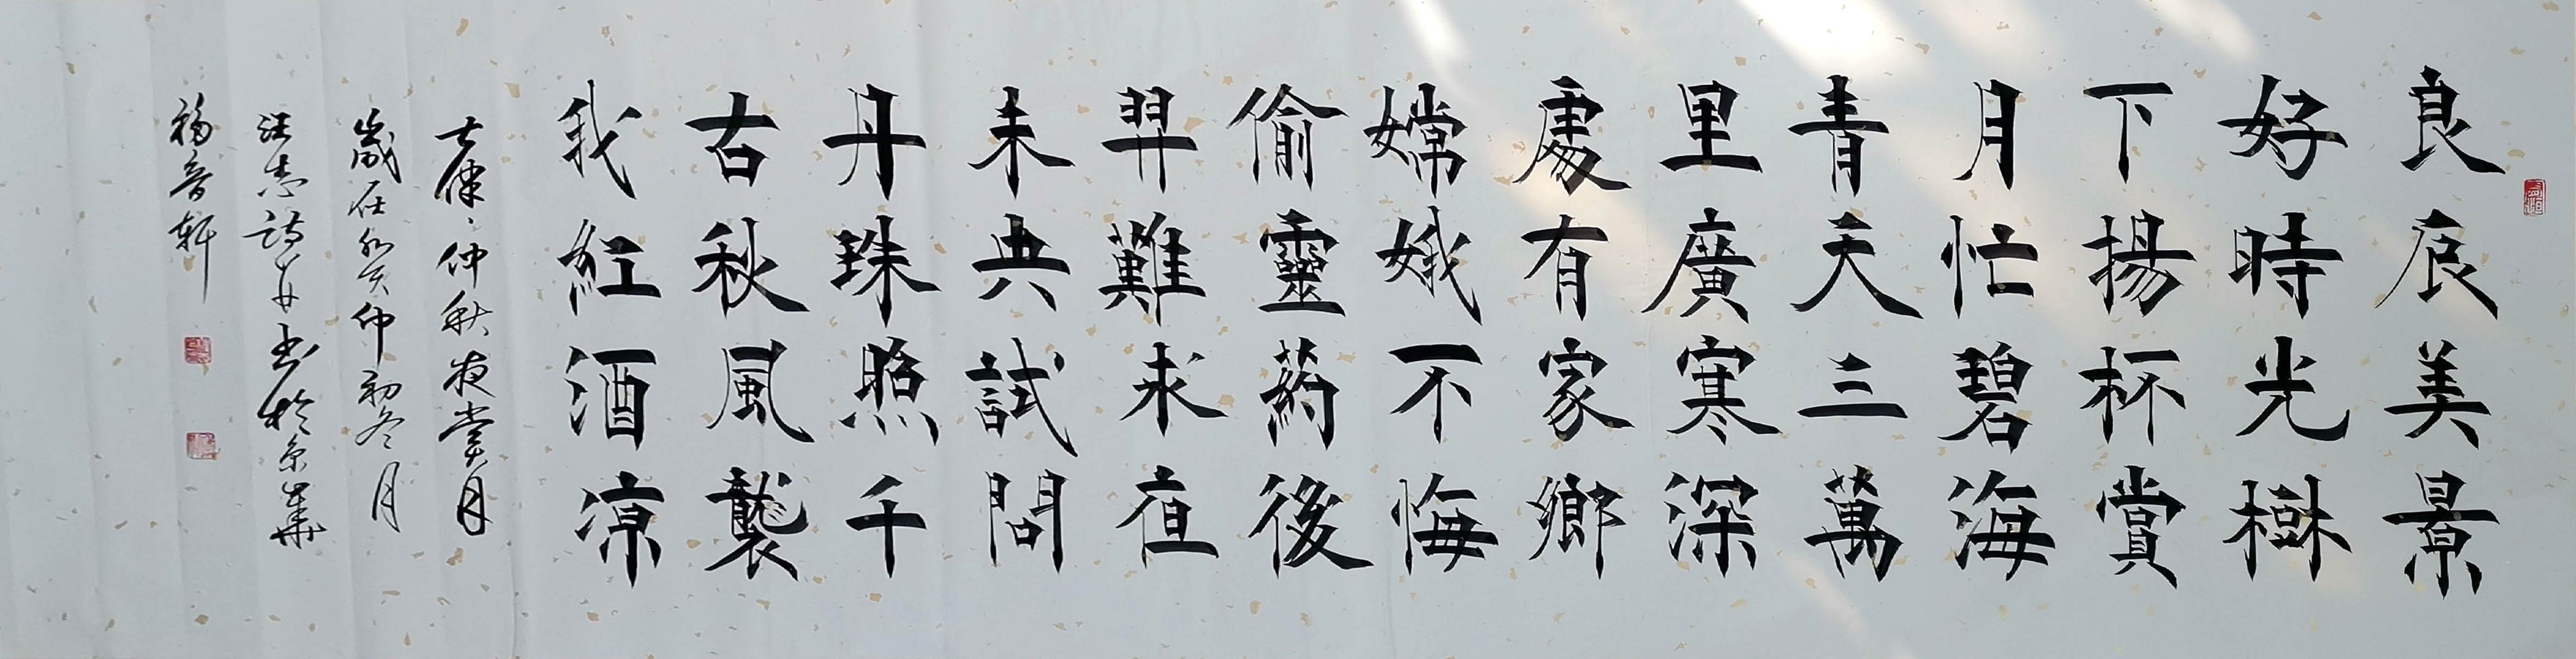 良辰美景
好時光樹
下揚杯賞
月忙碧海
青天三萬
里廣寒深
處有家鄉
嫦娥不悔
偷靈葯後
羿難求直
未典試問
丹珠照千
古秋風襲
我紅酒凉
七律：仲秋夜賞月
歲在己亥仲初冬月
汪志詩并書於京華
福音軒